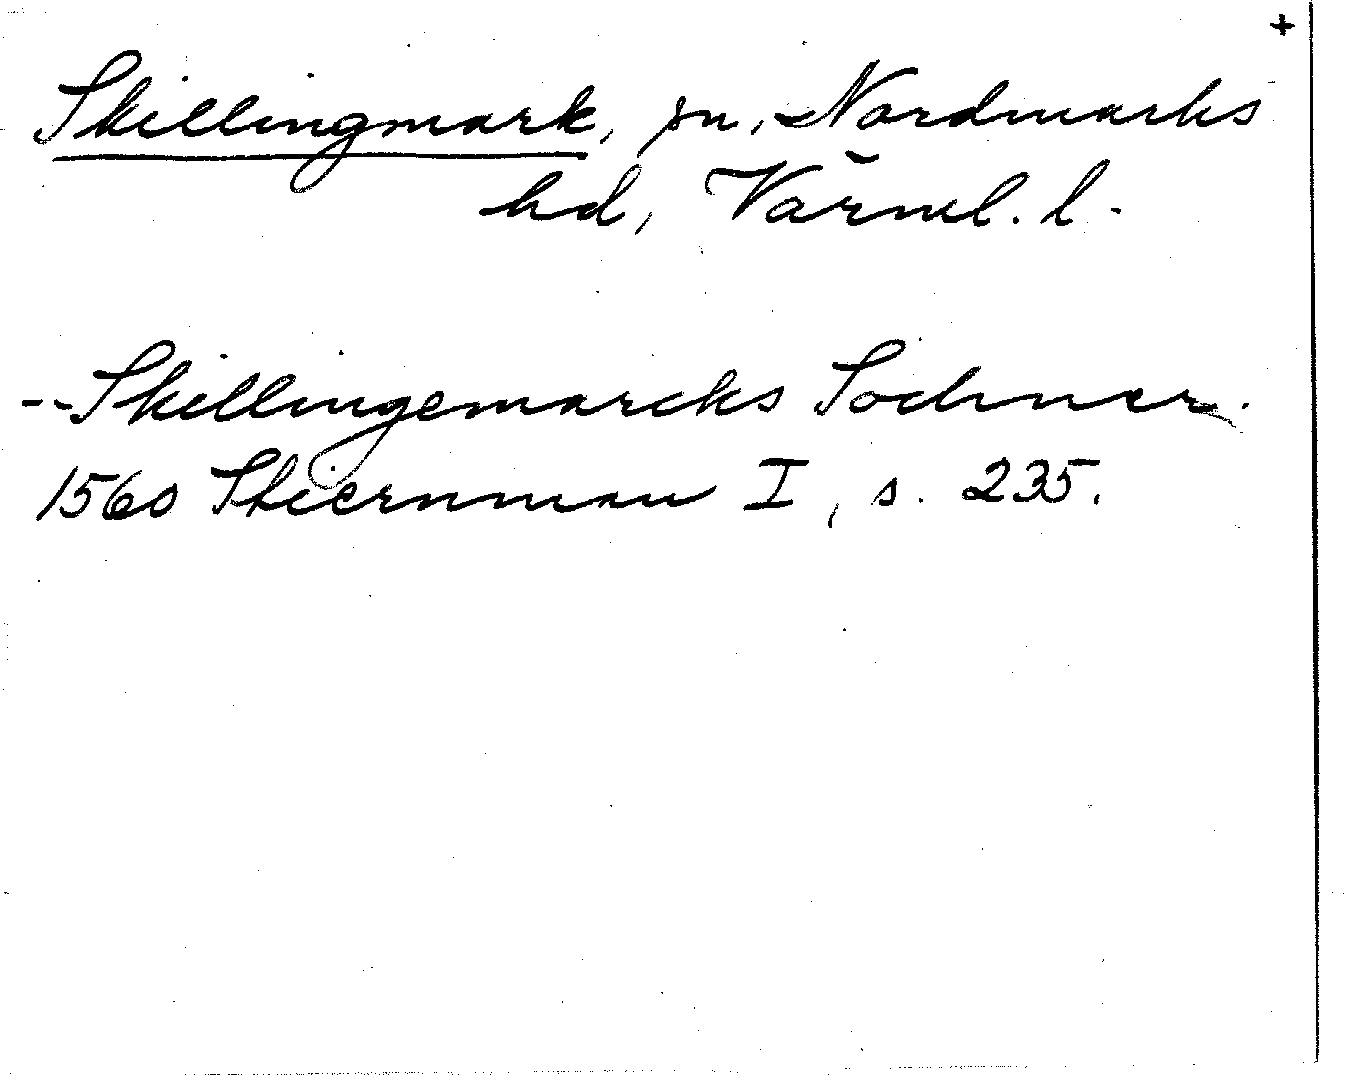 +
Skillingmark, sn, Nordmarks
hd, Värml. l.
-- Skillingemarcks Sochner.
1560 Stiernman I, s. 235.